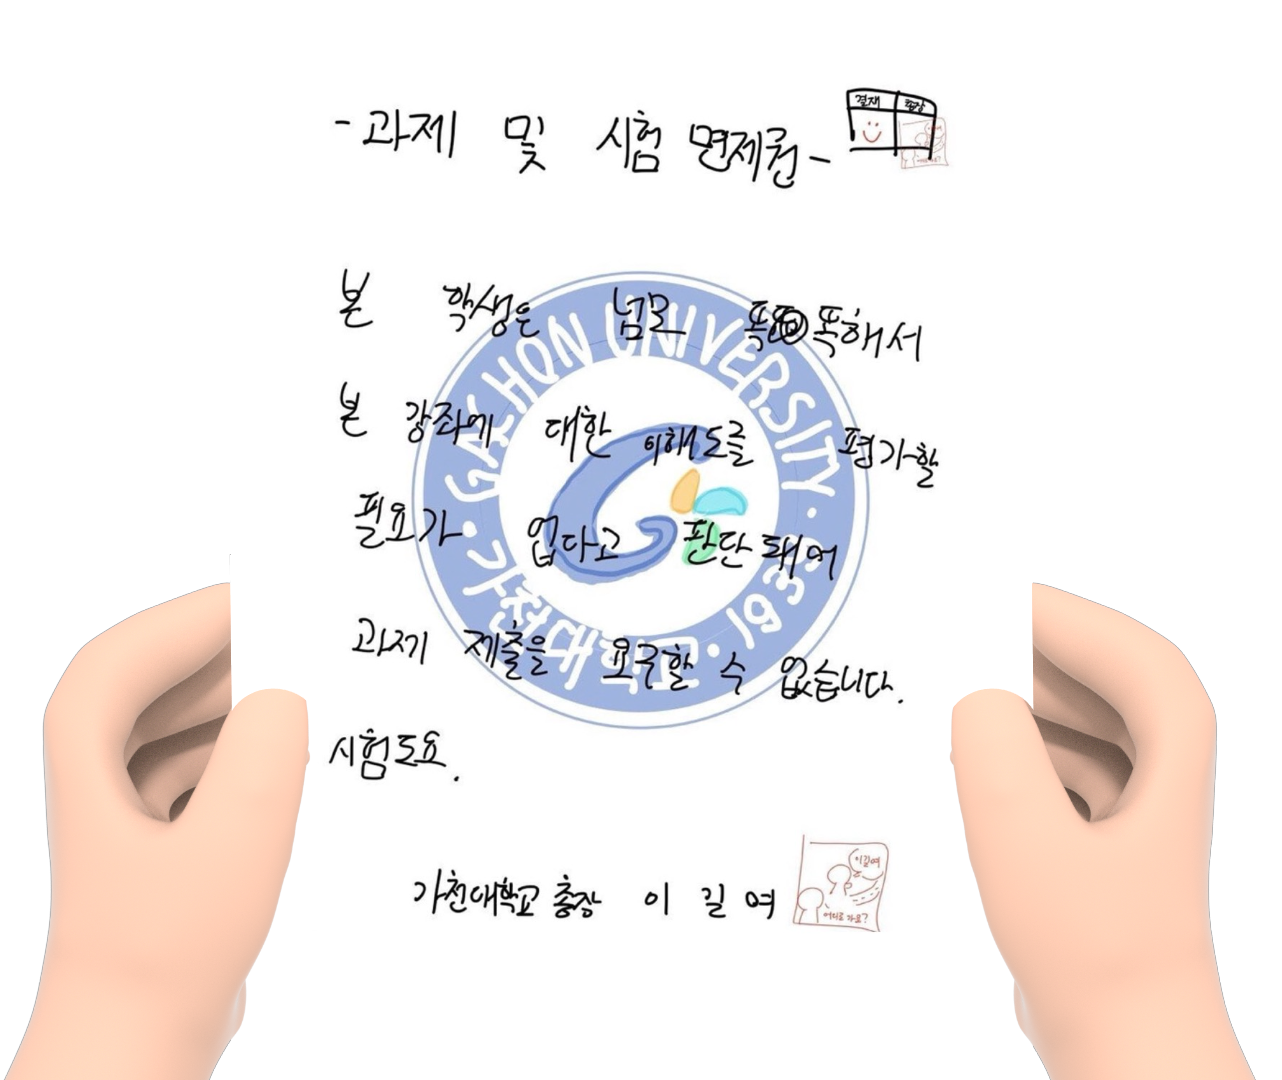 -과제 및 시험 면제권-
결재 총장
본 학생은 넘모 똑똑해서
본 강좌에 대한 이해도를 평가할
필요가 없다고 판단돼어
과제 제출을 요구할 수 없습니다.
시험도요.
GACHON UNIVERSITY · 가천대학교 · 1939
가천대학교 총장 이 길 여
이길여
어디로 가요?